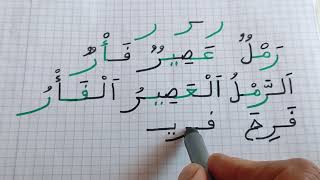 ر ـر ر
رَمْلٌ عَصِيرٌ فَأْرٌ
اَلرَّمْلُ اَلْعَصِيرُ اَلْفَأْرُ
فَرِحَ فريـ